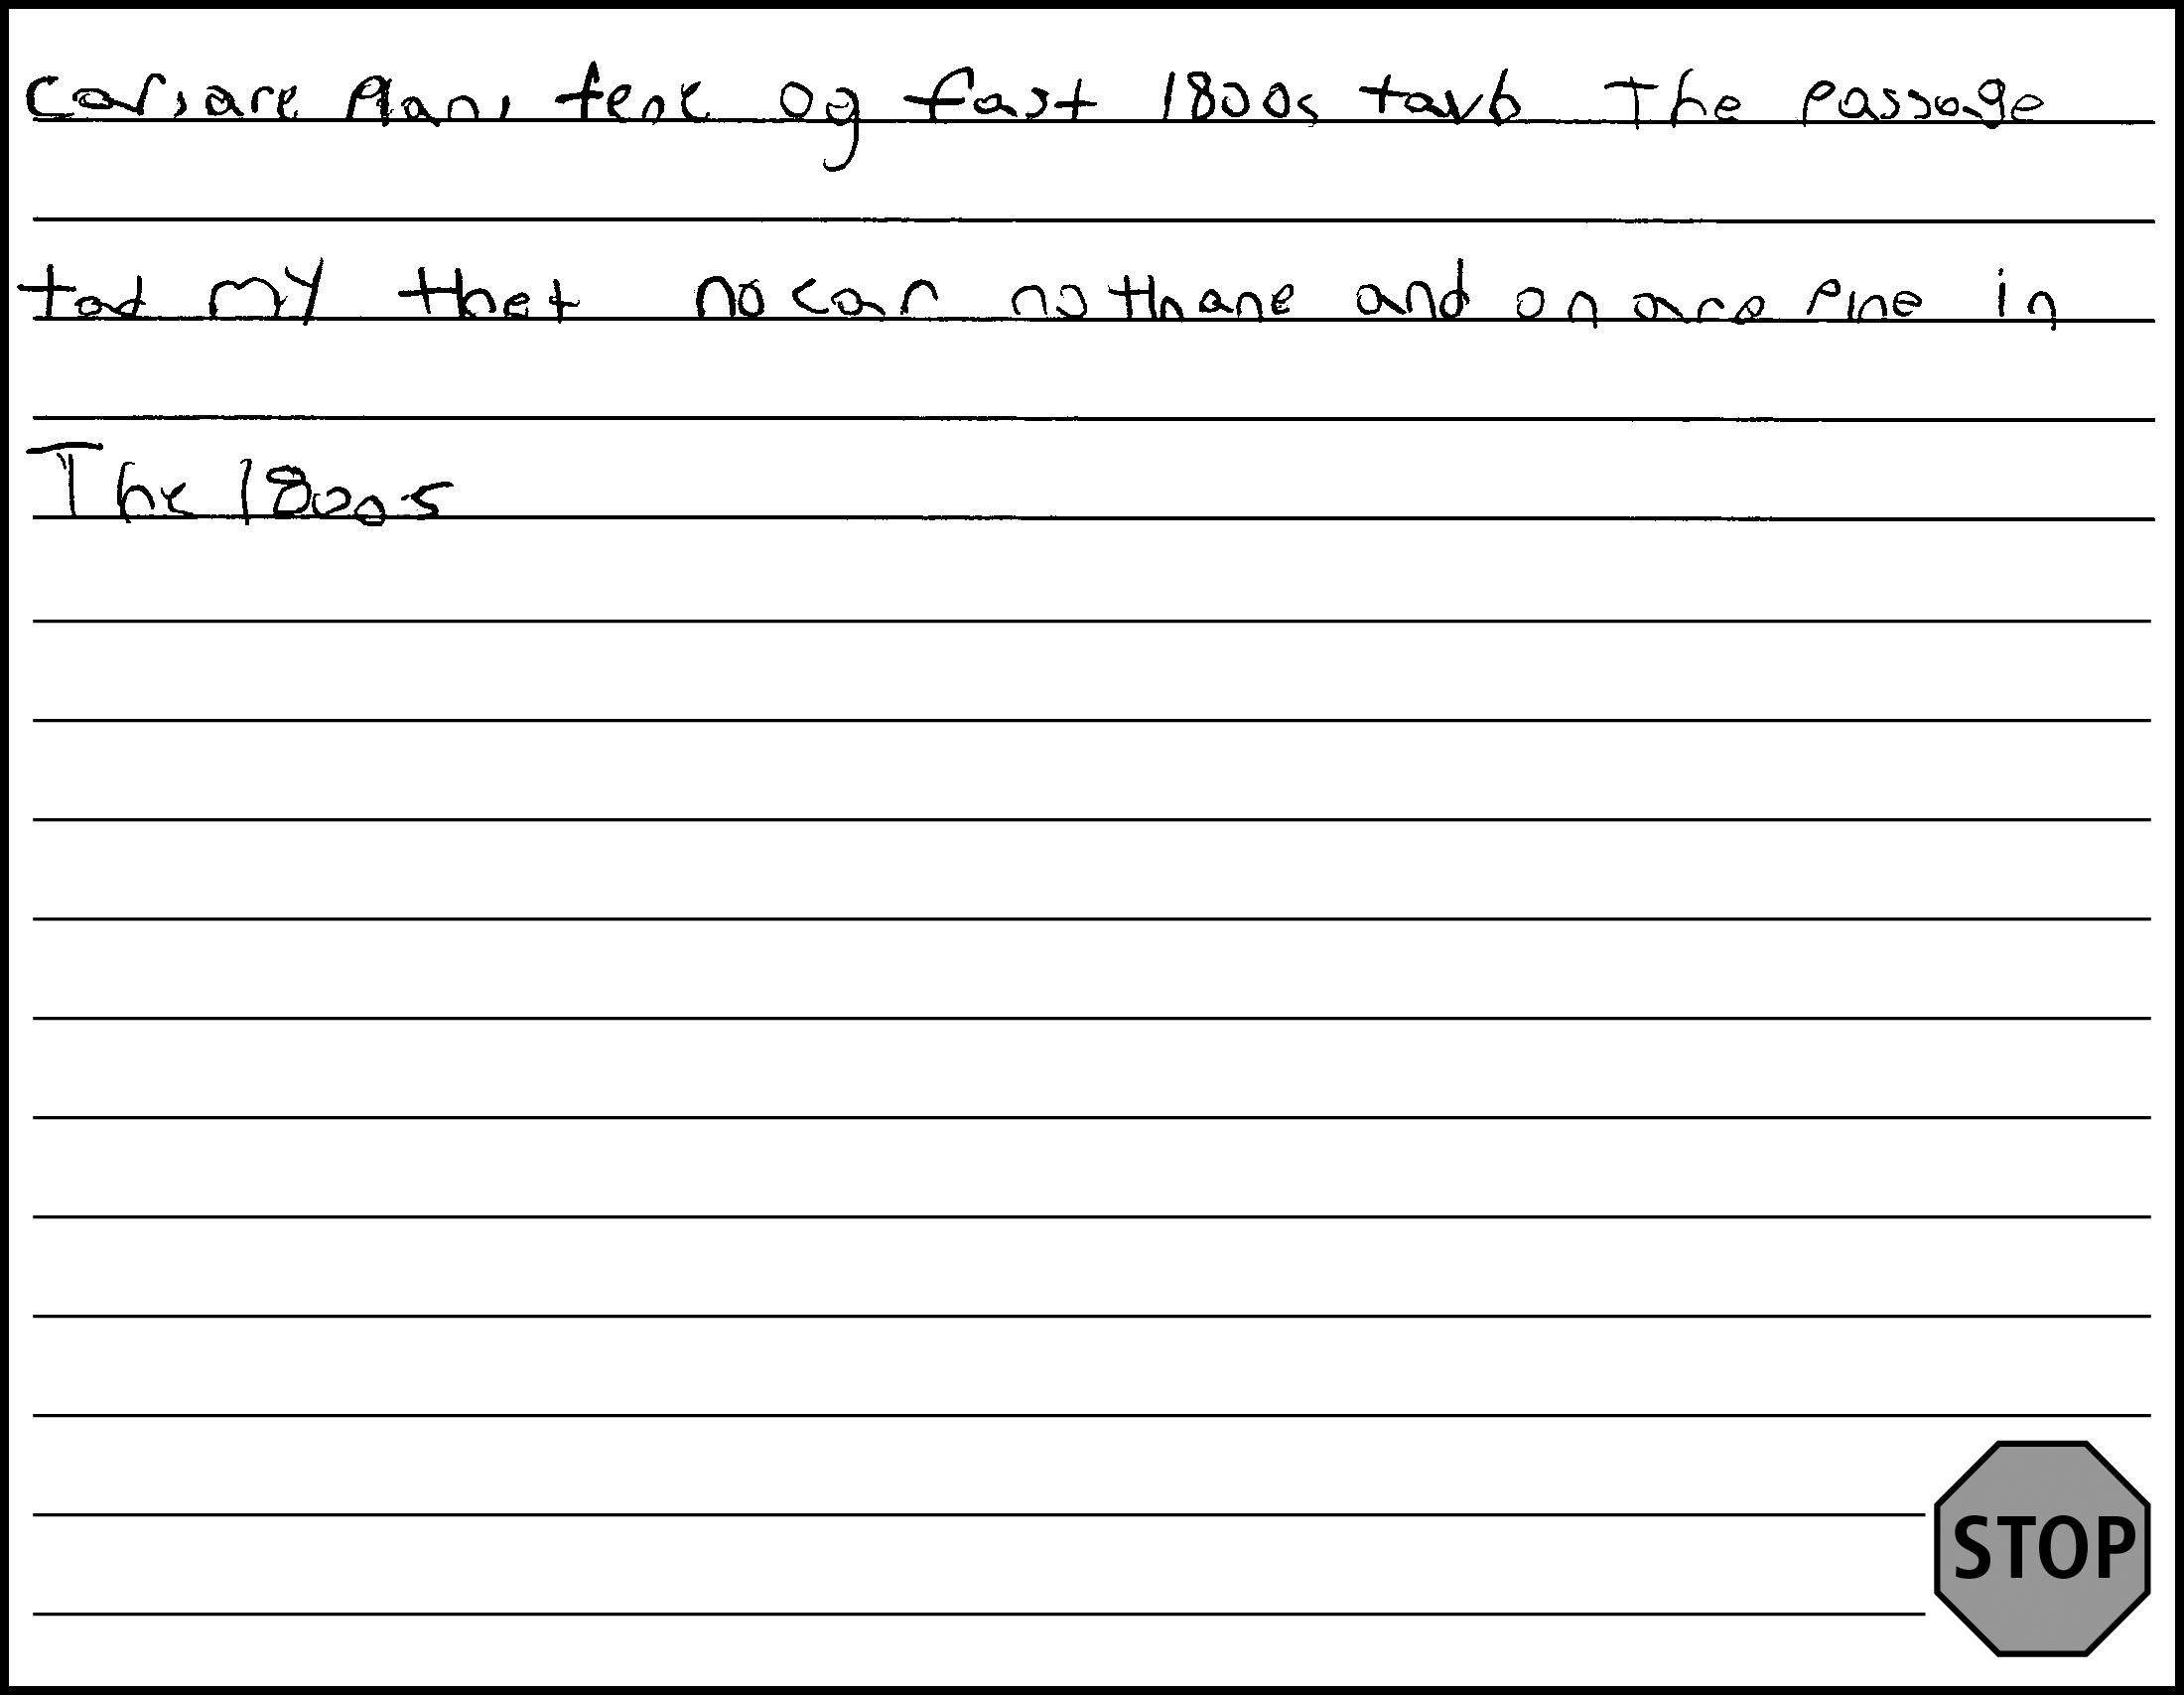 Cars, are Plan, tenc og fast 1800s tavb The Passage
tad my thet no car no thane and on are Pine in
The 1800s
STOP